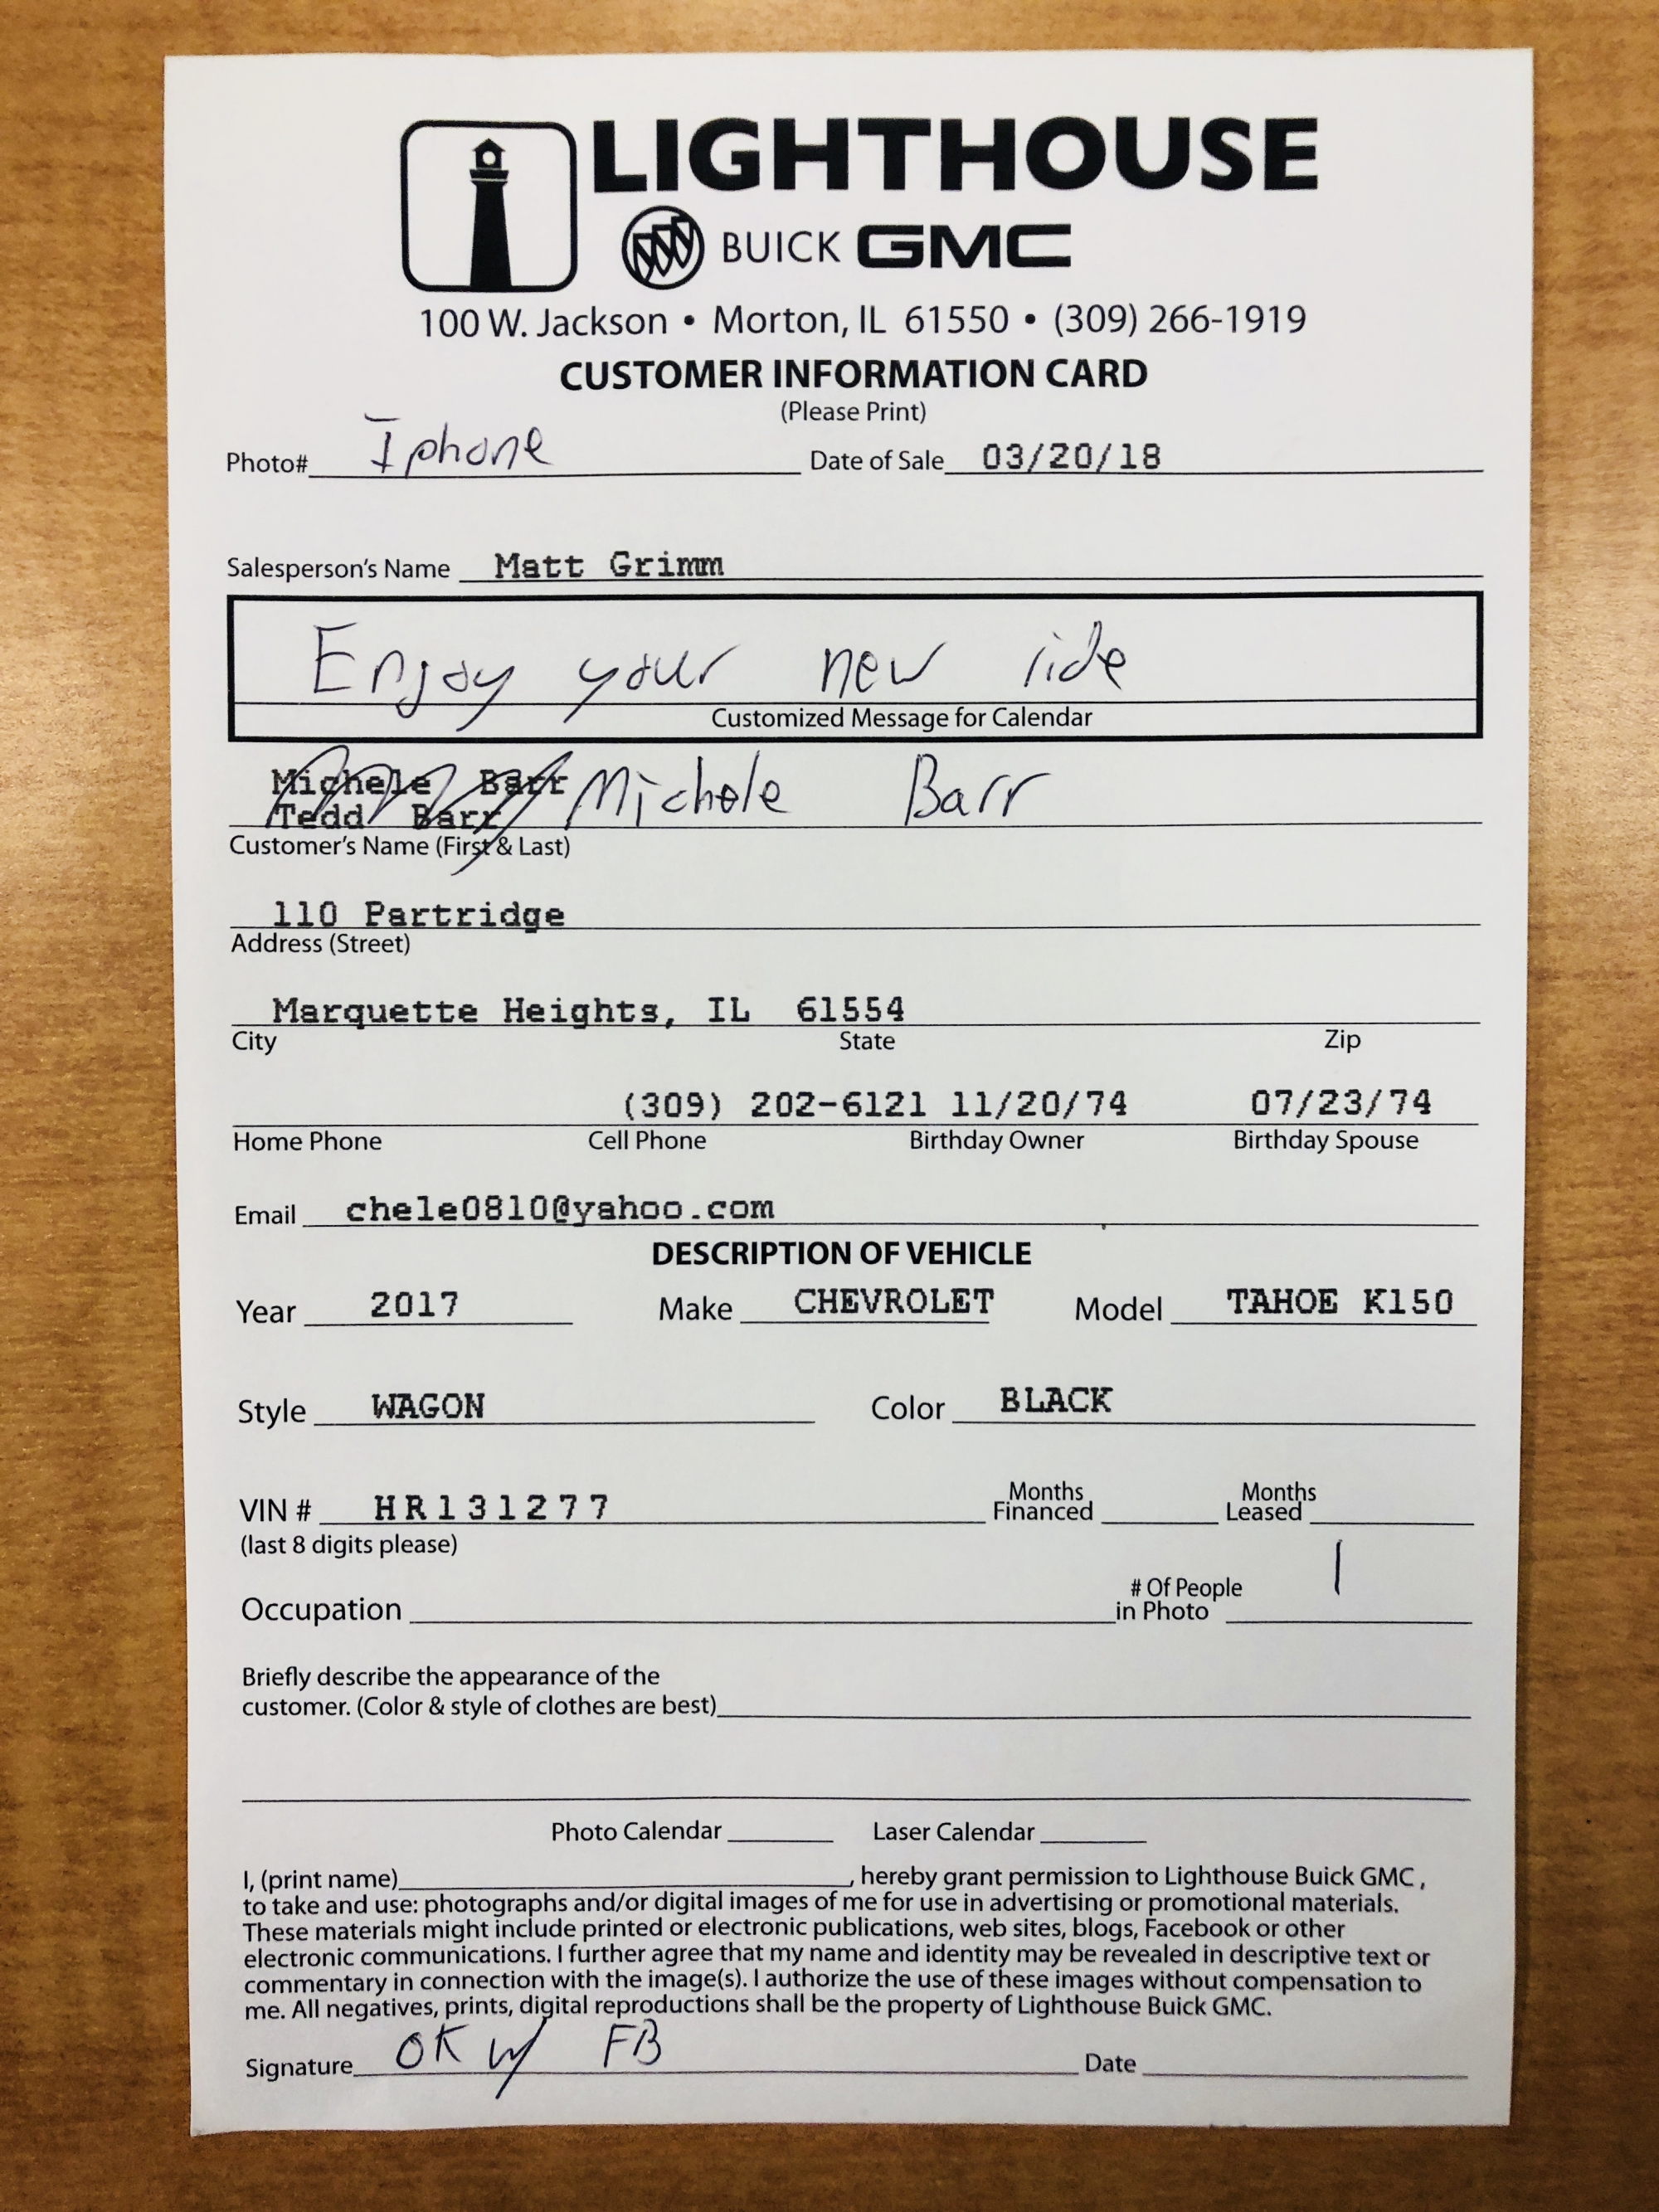 LIGHTHOUSE
BUICK GMC
100 W. Jackson • Morton, IL 61550 • (309) 266-1919
CUSTOMER INFORMATION CARD
(Please Print)
Photo# Iphone Date of Sale 03/20/18
Salesperson's Name Matt Grimm
Enjoy your new ride
Customized Message for Calendar
Michele Barr
Tedd Barr Michele Barr
Customer's Name (First & Last)
110 Partridge
Address (Street)
Marquette Heights, IL 61554
City State Zip
(309) 202-6121 11/20/74 07/23/74
Home Phone Cell Phone Birthday Owner Birthday Spouse
Email chele0810@yahoo.com
DESCRIPTION OF VEHICLE
Year 2017 Make CHEVROLET Model TAHOE K150
Style WAGON Color BLACK
VIN # HR131277 Months Financed Months Leased
(last 8 digits please)
Occupation # Of People in Photo 1
Briefly describe the appearance of the
customer. (Color & style of clothes are best)
Photo Calendar Laser Calendar
I, (print name) , hereby grant permission to Lighthouse Buick GMC ,
to take and use: photographs and/or digital images of me for use in advertising or promotional materials.
These materials might include printed or electronic publications, web sites, blogs, Facebook or other
electronic communications. I further agree that my name and identity may be revealed in descriptive text or
commentary in connection with the image(s). I authorize the use of these images without compensation to
me. All negatives, prints, digital reproductions shall be the property of Lighthouse Buick GMC.
Signature OK w/ FB Date